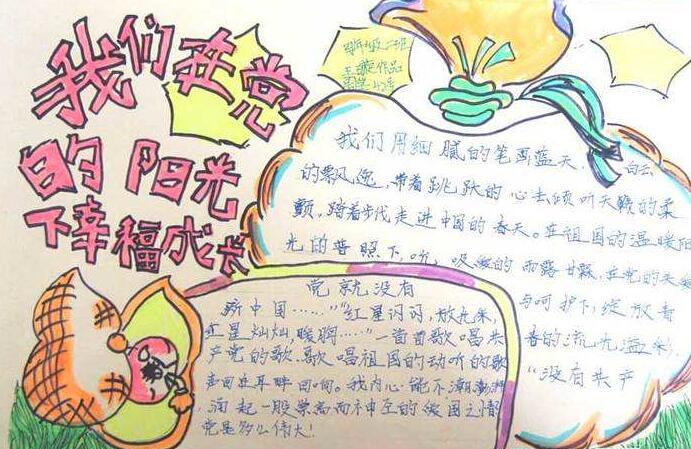 我们在党
的阳光
下幸福成长
四年级二班
作品
我们用细腻的笔画蓝天、白云
的飘逸,带着跳跃的心去倾听天籁的柔
颤,踏着步伐走进中国的春天。在祖国的温暖阳
光的普照下,吮吸 的雨露甘霖,在党的关怀
与呵护下,绽放青
春的流光溢彩,
“没有共产
党就没有
新中国……”“红星闪闪,放光彩,
红星灿灿,暖胸……”一首首歌唱共
产党的歌、歌唱祖国的动听的歌
声回在耳畔回响。我内心能不潮澎湃
,涌起一股崇高而不由在的爱国之情
党是多么伟大!